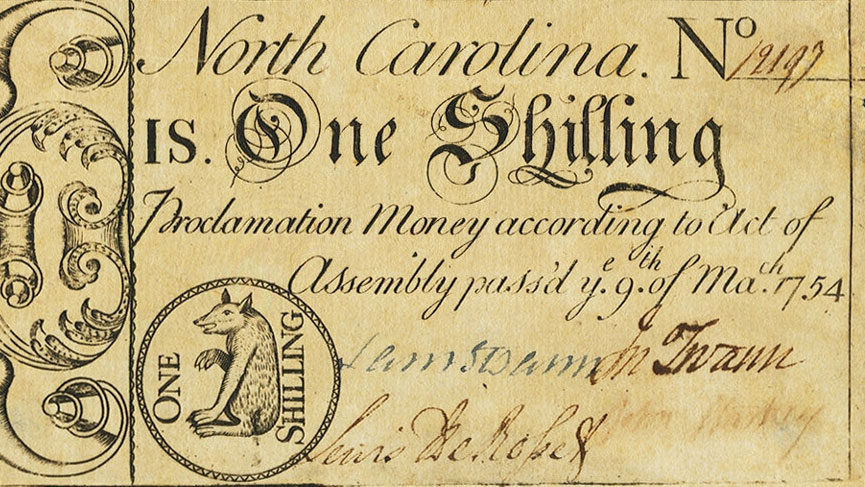 North Carolina. No 12197
1S. One Shilling
Proclamation Money according to Act of
Assembly pass'd ye. 9th. of Mach. 1754.
ONE SHILLING
Lewis DeRosset